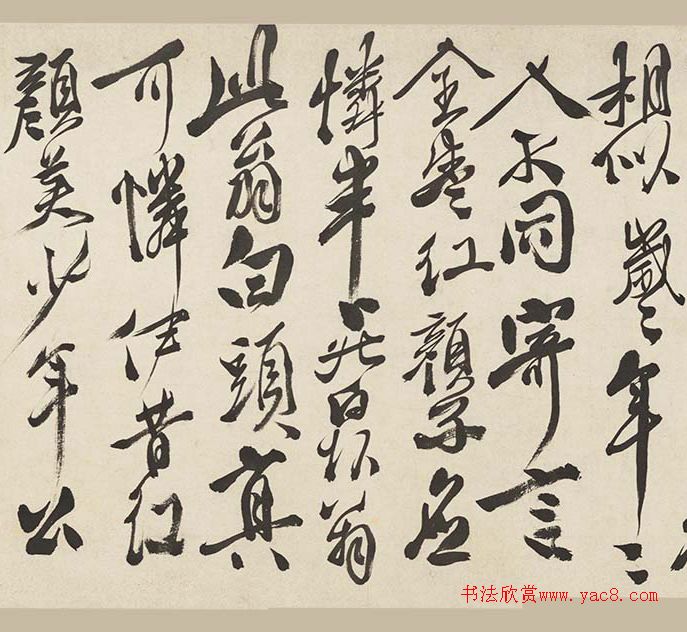 相似歲〻年〻
人不同寄言
全盛紅顏子應
憐半死白頭翁
此翁白頭真
可憐伊昔紅
顏美少年公
书法欣赏www.yac8.com